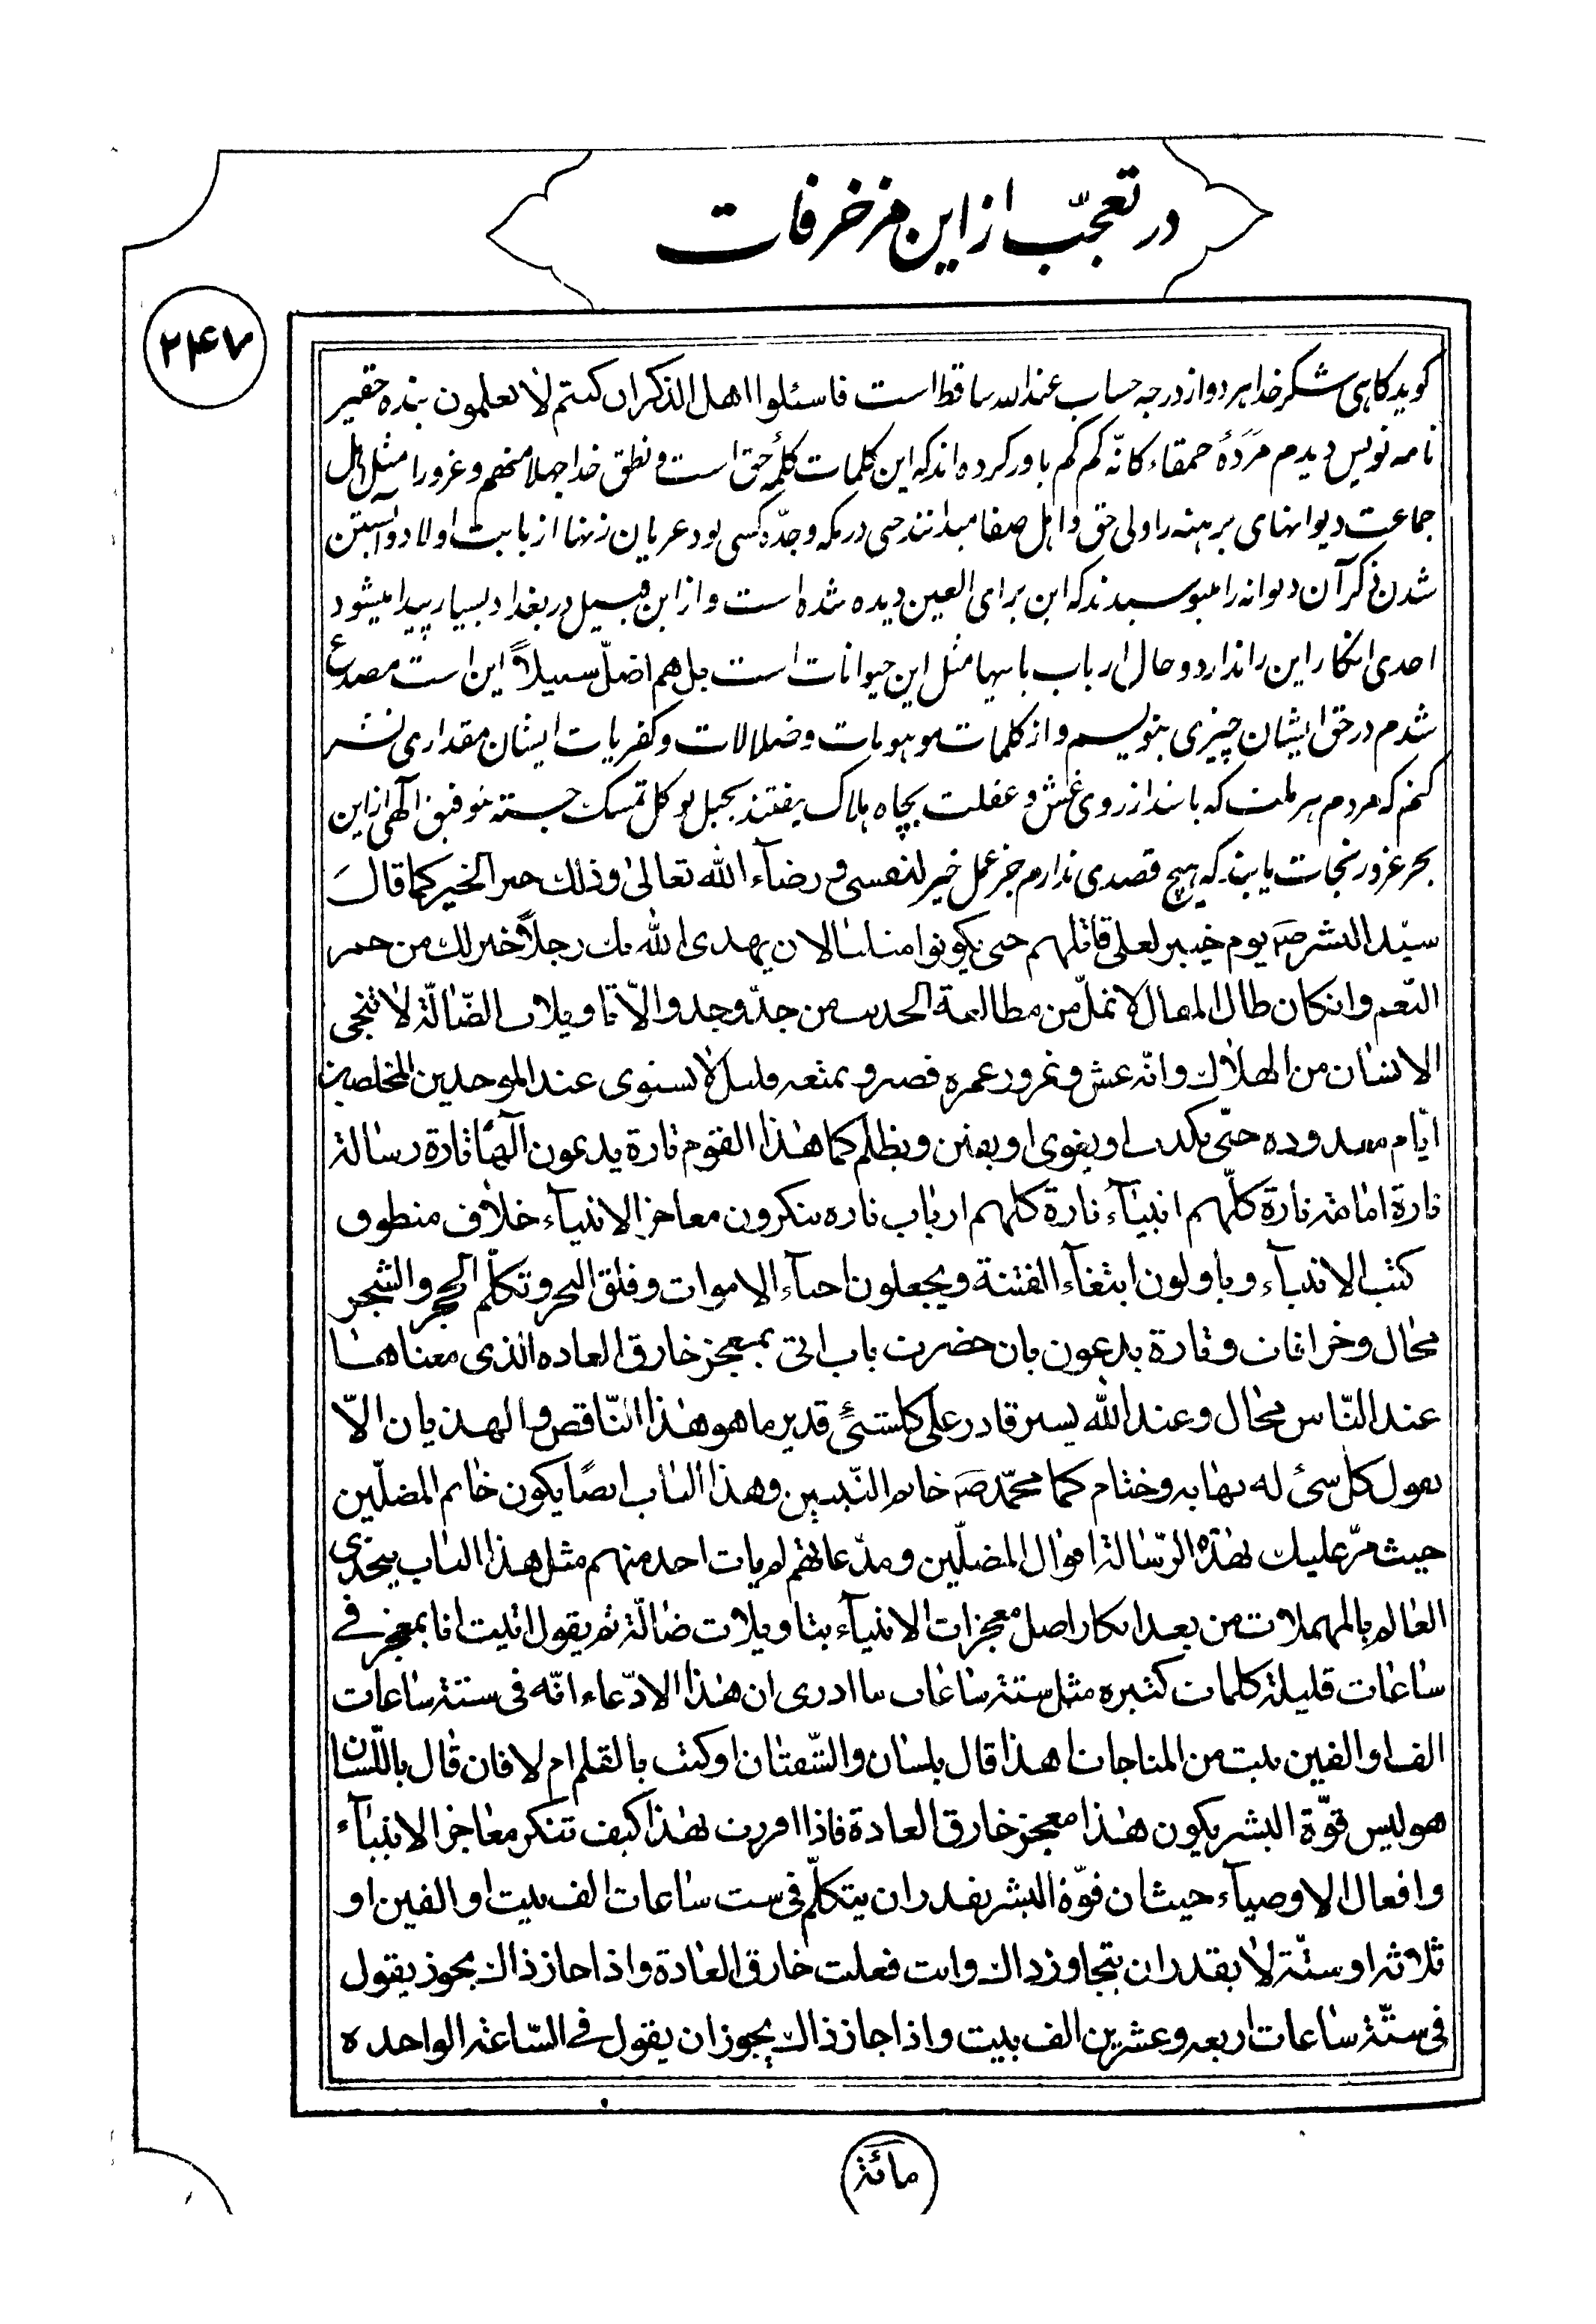 در تعجّب از این مزخرفات
۲۴۷
کوید کاهی شکر خدا هر دو از درجه حساب عند الله ساقط است فاسئلوا اهل الذکر ان کنتم لا تعلمون بنده حقیر
نامه نویس دیدم مَرَدَهٔ حمقاء کانّه کم کم باور کرده‌اند که این کلمات کلمهٔ حق است و نطق خدا جهلا منهم و غرورا مثل اهل
جماعت دیوانهای برهنه را ولی حق و اهل صفا میدانند حتی در مکه و جدّه کسی بود عریان زنها از بابت اولاد و آبستن
شدن ذکر آن دیوانه را میبوسیدند که این برای العین دیده شده است و از این قبیل در بغداد بسیار پیدا میشود
احدی انکار این را ندارد و حال ارباب بابیها مثل این حیوانات است بل هم اضلّ سبیلاً این است مصدع
شدم در حق ایشان چیزی بنویسم و از کلمات موهومات و ضلالات و کفریات ایشان مقداری نشر
کنم که مردم هر ملت که باشد از روی غش و غفلت بچاه هلاک نیفتند بحبل توکل تمسک جسته بتوفیق الهی از این
بحر غرور نجات یابند که هیچ قصدی ندارم جز عمل خیر لنفسی و رضآء الله تعالی و ذلك خیر الخیر کما قال
سیّد البشر صَ یوم خیبر لعلی قاتلهم حتی یکونوا مثلنا لان یهدی الله بك رجلاً خیر لك من حمر
النّعم و ان کان طال المقال لا تملّ من مطالعة الحدیث من جدّ وجد و الّا تاویلات الضّالّة لا تنجی
الانسان من الهلاك و انّه عش و غرور عمره قصیر و تمتعه قلیل لا یستوی عند الموحدین المخلصین
ایّام معدوده حتّی یکذب او یغوی او یفتن و یظلم کما هذا القوم تارة یدعون الٓهًا تارة رسالة
تارة امامة تارة کلّهم انبیآء تارة کلهم ارباب تاره ینکرون معاجز الانبیآء خلاف منطوق
کتب الانبیآء و یاولون ابتغآء الفتنة و یجعلون احیآء الاموات و فلق البحر و تکلّم الحجر و الشجر
محال و خرافات و تارة یدعون بان حضرت باب اتی بمعجز خارق العاده الذی معناهما
عند النّاس محال و عند الله یسیر قادر علی کلشئ قدیر ما هو هذا التّناقص و الهذیان الّا
یقول کل شئ له نهایه و ختام کما محمّد صَ خاتم النّبیین و هذا الباب ایضًا یکون خاتم المضلّین
حیث مرّ علیك بهذه الرّسالة اقوال المضلّین و مدّعاتهم لم یات احد منهم مثل هذا الباب یتحدّی
العالم بالمهملات من بعد انکار اصل معجزات الانبیآء بتاویلات ضالّة ثم یقول اتیت انا بمعجز فی
ساعات قلیلة کلمات کثیره مثل ستة ساعات ما ادری ان هذا الادّعاء انّه فی ستة ساعات
الف او الفین بیت من المناجات هذا قال بلسان و الشّفتان او کتب بالقلم ام لا فان قال باللّسان
هو لیس قوّة البشر یکون هذا معجز خارق العادة فاذا اقررت بهذا کیف تنکر معاجز الانبیآء
و افعال الاوصیآء حیث ان قوّة البشر یقدر ان یتکلّم فی ست ساعات الف بیت او الفین او
ثلاثه او ستّة لا یقدر ان یتجاوز ذالك و انت فعلت خارق العادة و اذا جاز ذالك یجوز یقول
فی ستّة ساعات اربعه و عشرین الف بیت و اذا جاز ذالك یجوز ان یقول فی السّاعة الواحده
مائة